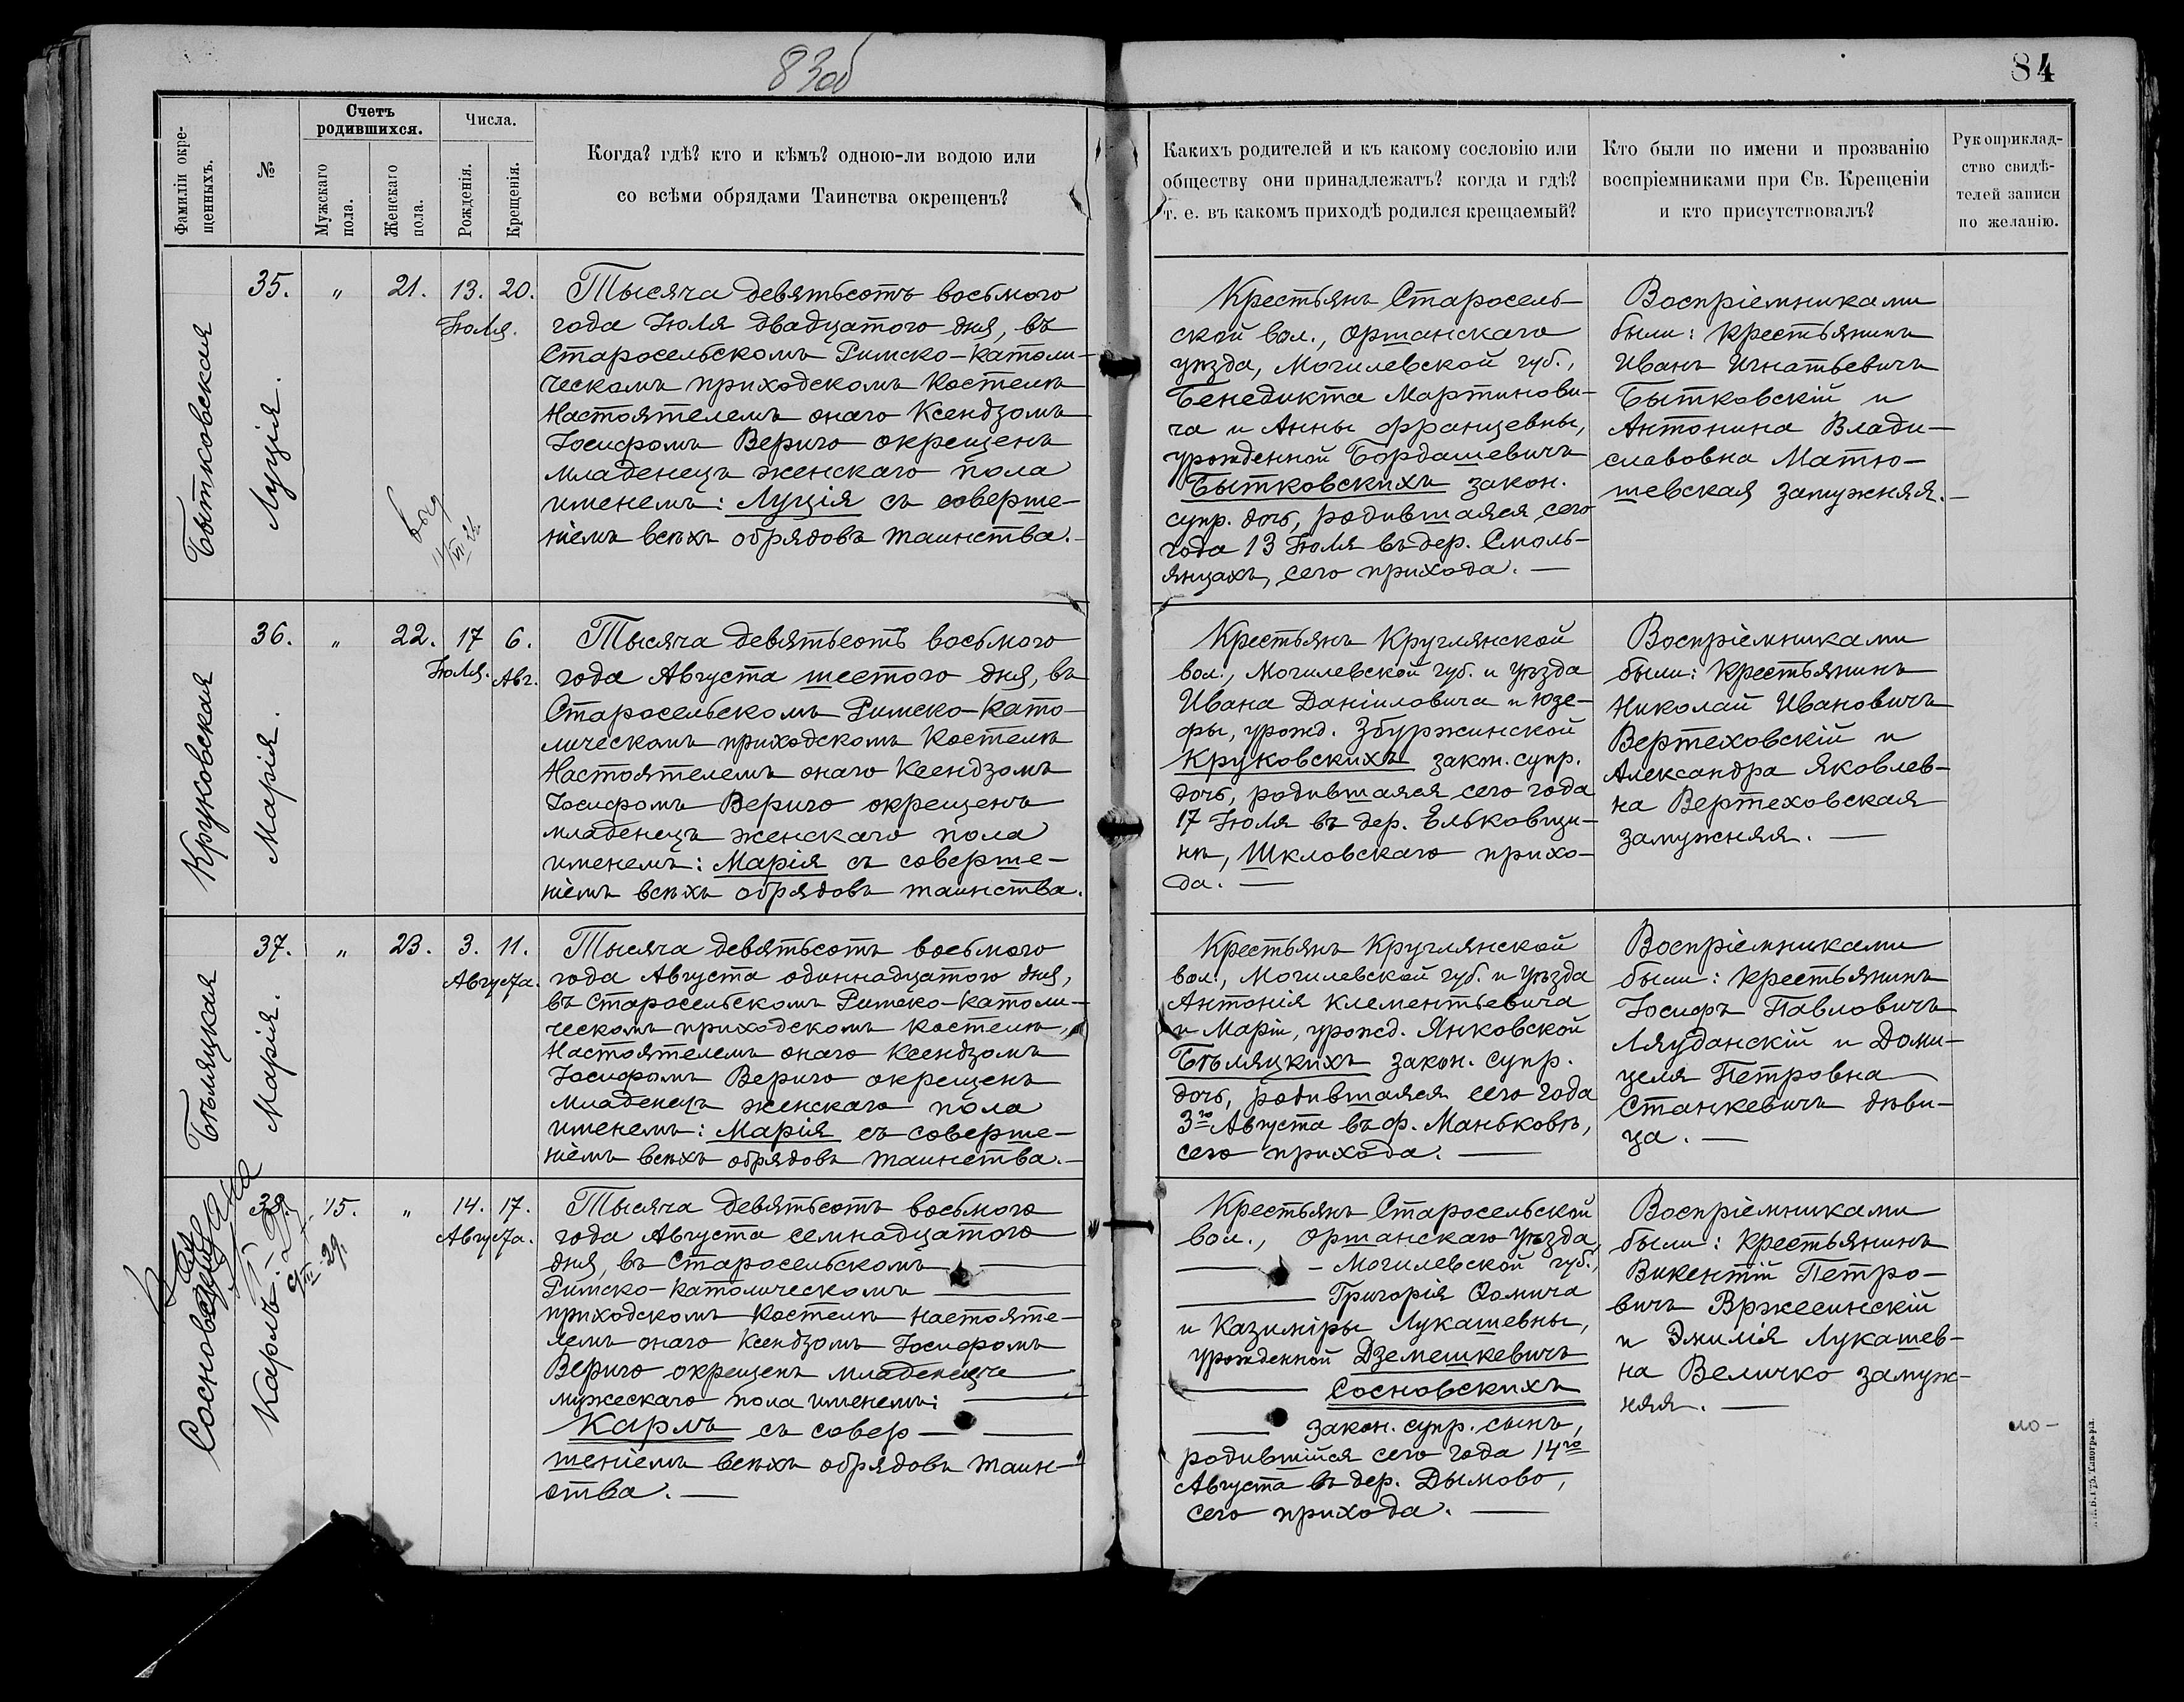 83об
84
Фамиліи окре-
щенныхъ.
№
Счетъ
родившихся.
Мужскаго
пола.
Женскаго
пола.
Числа.
Рожденія.
Крещенія.
Когда? гдѣ? кто и кѣмъ? одною-ли водою или
со всѣми обрядами Таинства окрещенъ?
Какихъ родителей и къ какому сословію или
обществу они принадлежатъ? когда и гдѣ?
т. е. въ какомъ приходѣ родился крещаемый?
Кто были по имени и прозванію
воспріемниками при Св. Крещеніи
и кто присутствовалъ?
Рукоприклад-
ство свидѣ-
телей записи
по желанію.
Бытковская
Луція.
35. " 21. 13. 20.
Іюля.
Тысяча девятьсотъ восьмого
года Іюля двадцатого дня, въ
Старосельскомъ Римско-католи-
ческомъ приходскомъ Костелѣ
Настоятелемъ онаго Ксендзомъ
Іосифомъ Вериго окрещенъ
младенецъ женскаго пола
именемъ: Луція съ соверше-
ніемъ всѣхъ обрядовъ таинства.
Крестьянъ Старосель-
ской вол., Оршанскаго
уѣзда, Могилевской губ.,
Бенедикта Мартинови-
ча и Анны Францевны,
урожденной Бордашевичъ
Бытковскихъ закон.
супр. дочь, родившаяся сего
года 13 Іюля въ дер. Смоль-
янцахъ, сего прихода. —
Воспріемниками
были: крестьянинъ
Иванъ Игнатьевичъ
Бытковскій и
Антонина Влади-
славовна Матю-
шевская замужняя. —
Круковская
Марія.
36. " 22. 17 6.
Іюля. Авг.
Тысяча девятьсотъ восьмого
года Августа шестого дня, въ
Старосельскомъ Римско-като-
лическомъ приходскомъ Костелѣ
Настоятелемъ онаго Ксендзомъ
Іосифомъ Вериго окрещенъ
младенецъ женскаго пола
именемъ: Марія съ соверше-
ніемъ всѣхъ обрядовъ таинства.
Крестьянъ Круглянской
вол., Могилевской губ. и уѣзда
Ивана Даніиловича и Юзе-
фы, урожд. Збуржинской
Круковскихъ закон. супр.
дочь, родившаяся сего года
17 Іюля въ дер. Ельковщи-
нѣ, Шкловскаго прихо-
да. —
Воспріемниками
были: крестьянинъ
Николай Ивановичъ
Вертеховскій и
Александра Яковлев-
на Вертеховская
замужняя. —
Бѣляцкая
Марія.
37. " 23. 3. 11.
Августа.
Тысяча девятьсотъ восьмого
года Августа одиннадцатого дня,
въ Старосельскомъ Римско-католи-
ческомъ приходскомъ костелѣ,
Настоятелемъ онаго Ксендзомъ
Іосифомъ Вериго окрещенъ
младенецъ женскаго пола
именемъ: Марія съ соверше-
ніемъ всѣхъ обрядовъ таинства. —
Крестьянъ Круглянской
вол., Могилевской губ. и уѣзда
Антонія Клементьевича
и Маріи, урожд. Янковской
Бѣляцкихъ закон. супр.
дочь, родившаяся сего года
3го Августа въ ф. Маньковѣ,
сего прихода. —
Воспріемниками
были: крестьянинъ
Іосифъ Павловичъ
Ляуданскій и Доми-
целя Петровна
Станкевичъ дѣви-
ца. —
Карлъ.
38 15. " 14. 17.
Августа.
Тысяча девятьсотъ восьмого
года Августа семнадцатого
дня, въ Старосельскомъ —
Римско-католическомъ —
приходскомъ костелѣ настояте-
лемъ онаго Ксендзомъ Іосифомъ
Вериго окрещенъ младенецъ
мужескаго пола именемъ: —
Карлъ съ совер —
шеніемъ всѣхъ обрядовъ таин-
ства. —
Крестьянъ Старосельской
вол., Оршанскаго уѣзда,
— Могилевской губ.,
— Григорія Ѳомича
и Казиміры Лукашевны,
урожденной Дземешкевичъ
— Сосновскихъ
— закон. супр. сынъ,
родившійся сего года 14го
Августа въ дер. Дымово,
сего прихода. —
Воспріемниками
были: крестьянинъ
Викентій Петро-
вичъ Вржесинскій
и Эмилія Лукашев-
на Величко замуж-
няя. —